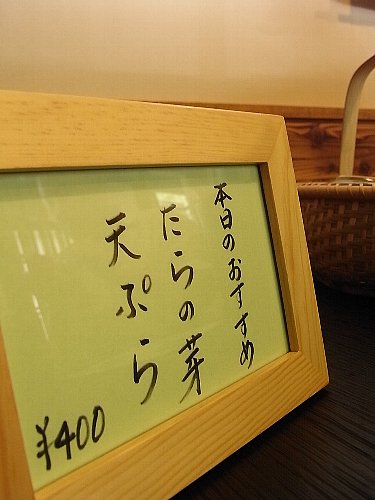 本日のおすすめ
たらの芽
天ぷら
¥400